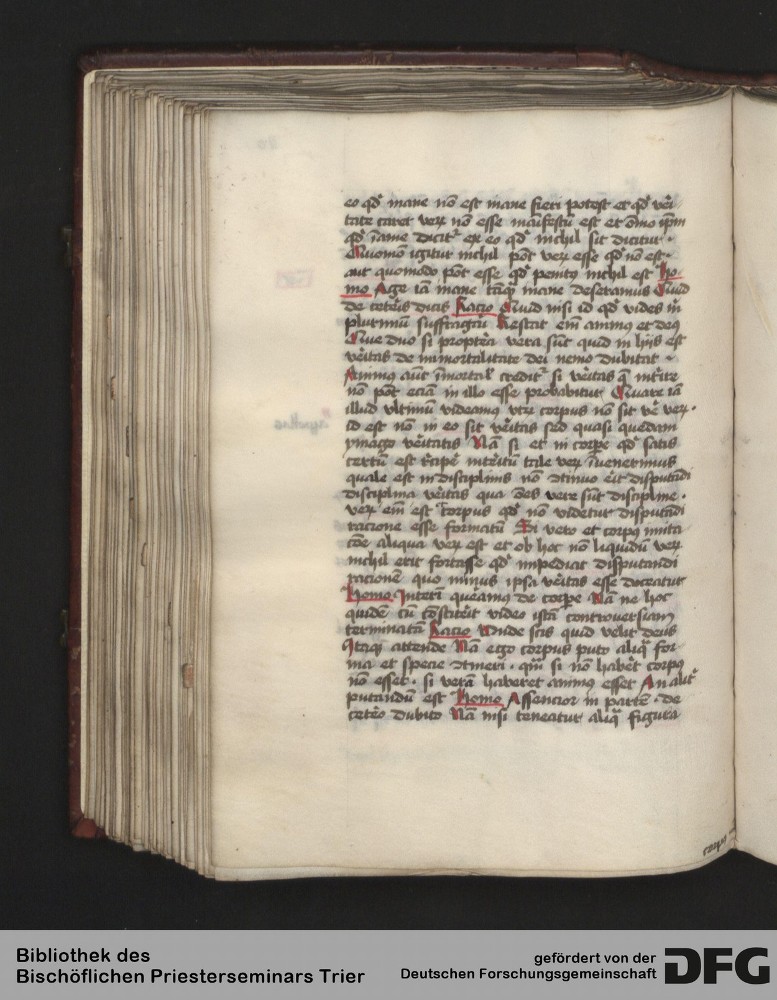 eo qd inane nō est inane fieri potest et qd veri
tate caret verū nō esse māifestū est et ōmō ip̄m
qd īane dicit ex eo qd nichil sit dicitur
Quomō igitur nichil pōt verū esse qd nō est
aut quomodo pōt esse qd penitꝰ nichil est Ho
mo Age iā inane tāqꝫ inane deseramus Quid
de ceteris dicis Racio Quid nisi id qd vides m̄
plurimū suffragari Restat em̄ animus et deus
Que duo si proptea vera sūt quid in hijs est
veritas de inmortalitate dei nemo dubitat
Animus aūt īmortal' credit si veritas q̄ interire
nō pōt eciā in illo esse probabitur Quare iā
illud vltimū videamus vtrū corpus nō sit ve verū
id est nō in eo sit veritas sed quasi quedam
ymago veritatis Nā si et in corpe qd satis
certū est recipe interitū tale verū īuenerimus
quale est in disciplinis nō ɔtinuo erit disputādi
disciplina veritas qua ōes vere sūt discipline
verū em̄ est corpus qd nō videtur disputādi
racione esse formatū Si vero et corpus imita
cōe aliqua verū est et ob hoc nō liquidū verū
nichil erit fortasse qd impediat disputandi
racionē quo minus ipsa veritas esse doceatur
Homo Interī queamus de corpe Nā ne hoc
quidē cū cōstiterit video istā controuersiam
terminatā Racio Vnde scis quid velit deus
Itaqꝫ attende Nā ego corpus puto aliqꝫ for
ma et specie ɔtineri qm̄ si nō haberet corpus
nō esset si verā haberet animus esset An alit
putandū est Homo Assencior in parte de
cetero dubito Nā nisi teneatur aliqꝫ figura
Bibliothek des
Bischöflichen Priesterseminars Trier
gefördert von der
Deutschen Forschungsgemeinschaft
DFG